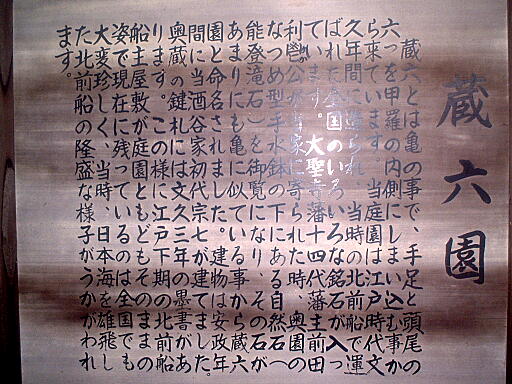 蔵六園
蔵六とは亀の事で、手足と頭尾の
六つを甲羅の内側にしまい込む事か
ら来ています。当庭園は江戸時代文
久年間に造られ、当時の北前船で運
ばれた全国のいろいろな銘石が入っ
ています。大聖寺藩十四代藩主前田
利鬯公が当家に寄られた時、奥園の
なつめ型手水鉢の下にある自然石(
能登滝石)を御覧になり、その石が
あまりにも亀に似ている事から蔵六
園と命名されました。建物は安政年
間に当酒谷家初代宗七が建てました。
奥蔵の鍵札には文久三年の墨書があ
ります。この様に江戸下期の北前船
船主屋敷が庭園ともどもそのままの
姿で現在に残っているのは全国でも
大変珍しく、当時、日本海を雄飛し
た北前船の隆盛な様子がうかがわれ
ます。